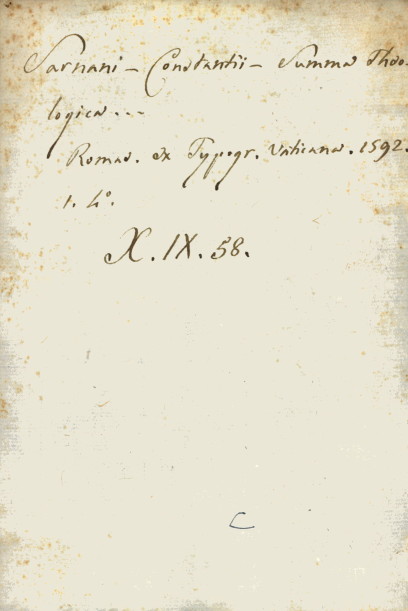 Sarnani - Constantii - Summa Theo-
logica...
Romae. ex Typogr. Vaticana. 1592.
1. 4°.
X. IX. 58.
C